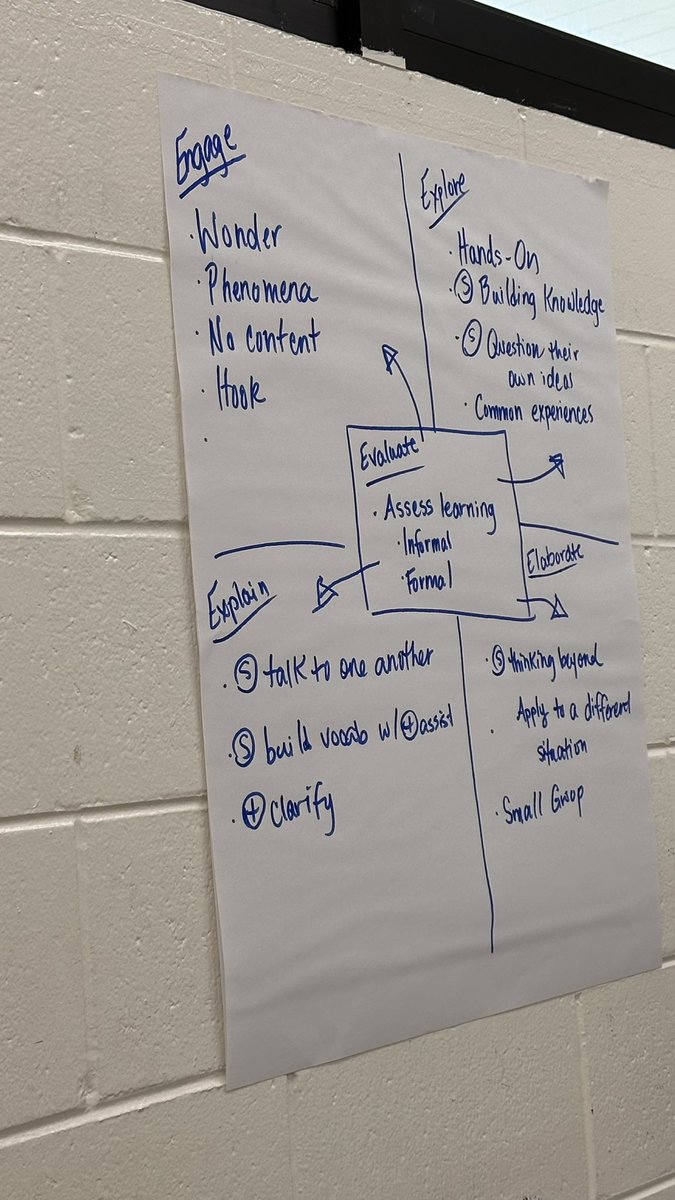 Engage
· Wonder
· Phenomena
· No content
· Hook
·
Explore
· Hands-On
· Ⓢ Building Knowledge
· Ⓢ Question their
own ideas
· Common experiences
Evaluate
· Assess learning
· Informal
· Formal
Explain
· Ⓢ talk to one another
· Ⓢ build vocab w/ Ⓣ assist
· Ⓣ clarify
Elaborate
· Ⓢ thinking beyond
· Apply to a different
situation
· Small Group